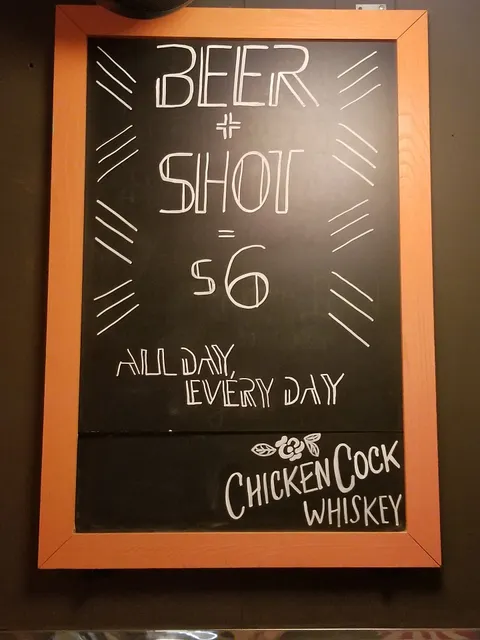 BEER
+
SHOT
=
$6
ALL DAY,
EVERY DAY
CHICKEN COCK
WHISKEY